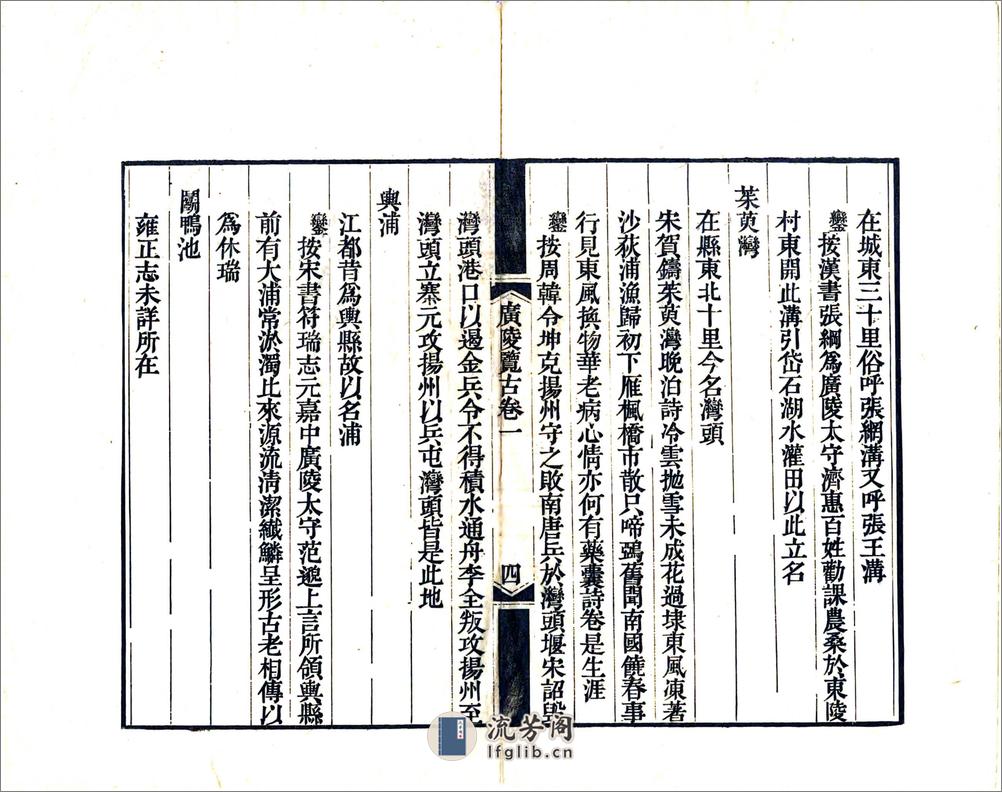 在城東三十里俗呼張網溝又呼張王溝
鑾按漢書張綱爲廣陵太守濟惠百姓勸課農桑於東陵
村東開此溝引岱石湖水灌田以此立名
茱萸灣
在縣東北十里今名灣頭
宋賀鑄茱萸灣晚泊詩冷雲抛雪未成花過埭東風凍著
沙荻浦漁歸初下雁楓橋市散只啼鴉舊聞南國饒春事
行見東風換物華老病心情亦何有藥囊詩卷是生涯
鑾按周韓令坤克揚州守之敗南唐兵於灣頭堰宋詔毀
廣陵覽古卷一
四
灣頭港口以遏金兵令不得積水通舟李全叛攻揚州至
灣頭立寨元攻揚州以兵屯灣頭皆是此地
輿浦
江都昔爲輿縣故以名浦
鑾按宋書符瑞志元嘉中廣陵太守范邈上言所領輿縣
前有大浦常淤濁比來源流清潔纖鱗呈形古老相傳以
爲休瑞
鬭鴨池
雍正志未詳所在
流芳阁
lfglib.cn